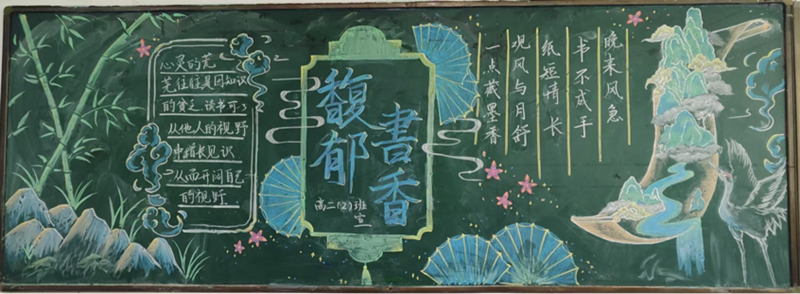 心灵的荒
芜往往是因知识
的贫乏 读书可以
从他人的视野
中增长见识
从而开阔自己
的视野
馥郁
書香
高二(2)班
宣
晚来风急
书不手
纸短情长
观风与月舒
一点藏墨香